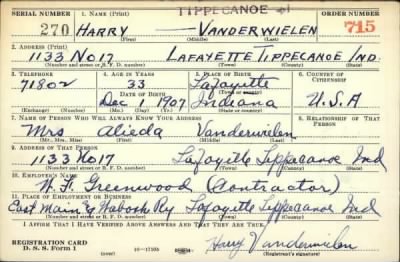 TIPPECANOE #1
SERIAL NUMBER 1. NAME (Print) ORDER NUMBER
270 HARRY —— VANDERWIELEN 715
(First) (Middle) (Last)
2. ADDRESS (Print)
1133 NO 17 LAFAYETTE TIPPECANOE IND.
(Number and street or R. F. D. number) (Town) (County) (State)
3. TELEPHONE 4. AGE IN YEARS 5. PLACE OF BIRTH 6. COUNTRY OF CITIZENSHIP
71802 33 Lafayette
DATE OF BIRTH (Town or county)
Dec 1 1907 Indiana U.S.A
(Exchange) (Number) (Mo.) (Day) (Yr.) (State or country)
7. NAME OF PERSON WHO WILL ALWAYS KNOW YOUR ADDRESS 8. RELATIONSHIP OF THAT PERSON
Mrs Alieda Vanderwielen
(Mr., Mrs., Miss) (First) (Middle) (Last)
9. ADDRESS OF THAT PERSON
1133 No 17 Lafayette Tippecanoe Ind
(Number and street or R. F. D. number) (Town) (County) (State)
10. EMPLOYER'S NAME
W. F. Greenwood (Contractor)
11. PLACE OF EMPLOYMENT OR BUSINESS
East Main & Wabash Ry Lafayette Tippecanoe Ind
(Number and street or R. F. D. number) (Town) (County) (State)
I AFFIRM THAT I HAVE VERIFIED ABOVE ANSWERS AND THAT THEY ARE TRUE.
REGISTRATION CARD
D. S. S. Form 1 16—17105 Harry Vanderwielen
(Registrant's signature)